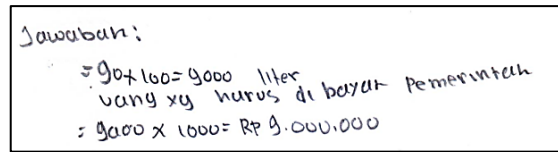 Jawaban:
= 90 x 100 = 9000 liter
uang yg harus di bayar Pemerintah
= 9000 x 1000 = RP 9.000.000